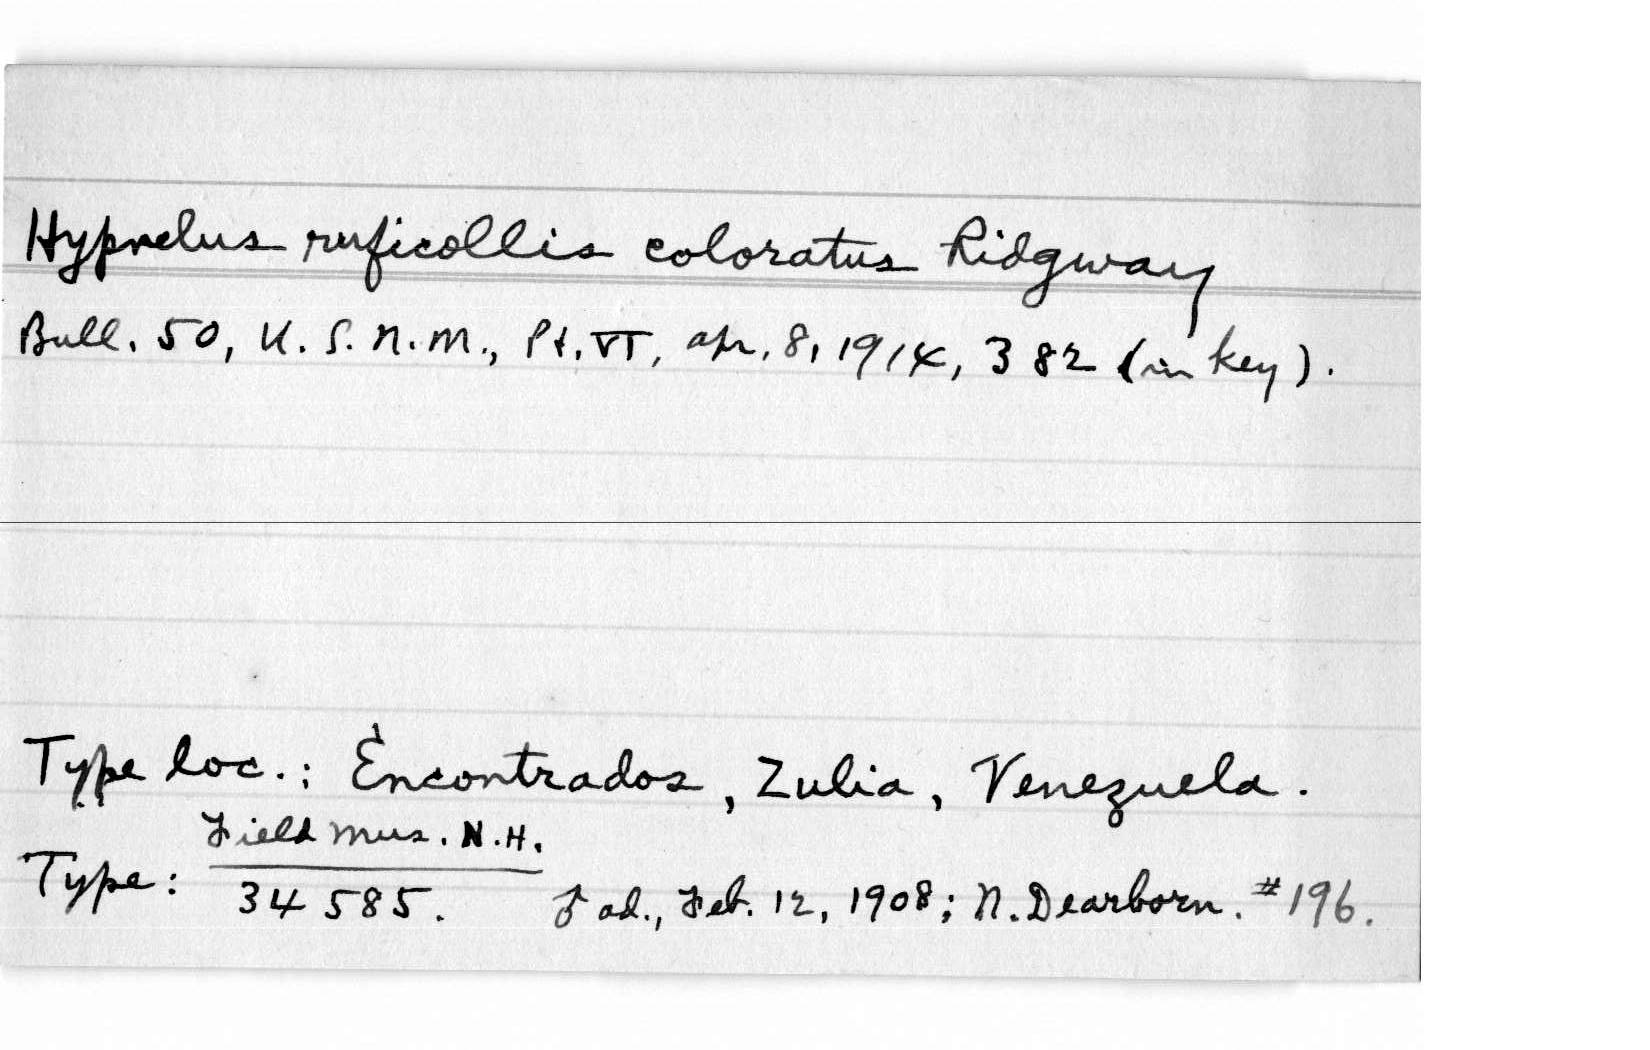 Hypnelus ruficollis coloratus Ridgway
Bull. 50, U.S.N.M., Pt. VI, Apr. 8, 1914, 382 (in key).
Type loc.: Encontrados, Zulia, Venezuela.
Field Mus. N.H.
Type: 34585. ♂ ad., Feb. 12, 1908; N. Dearborn. #196.